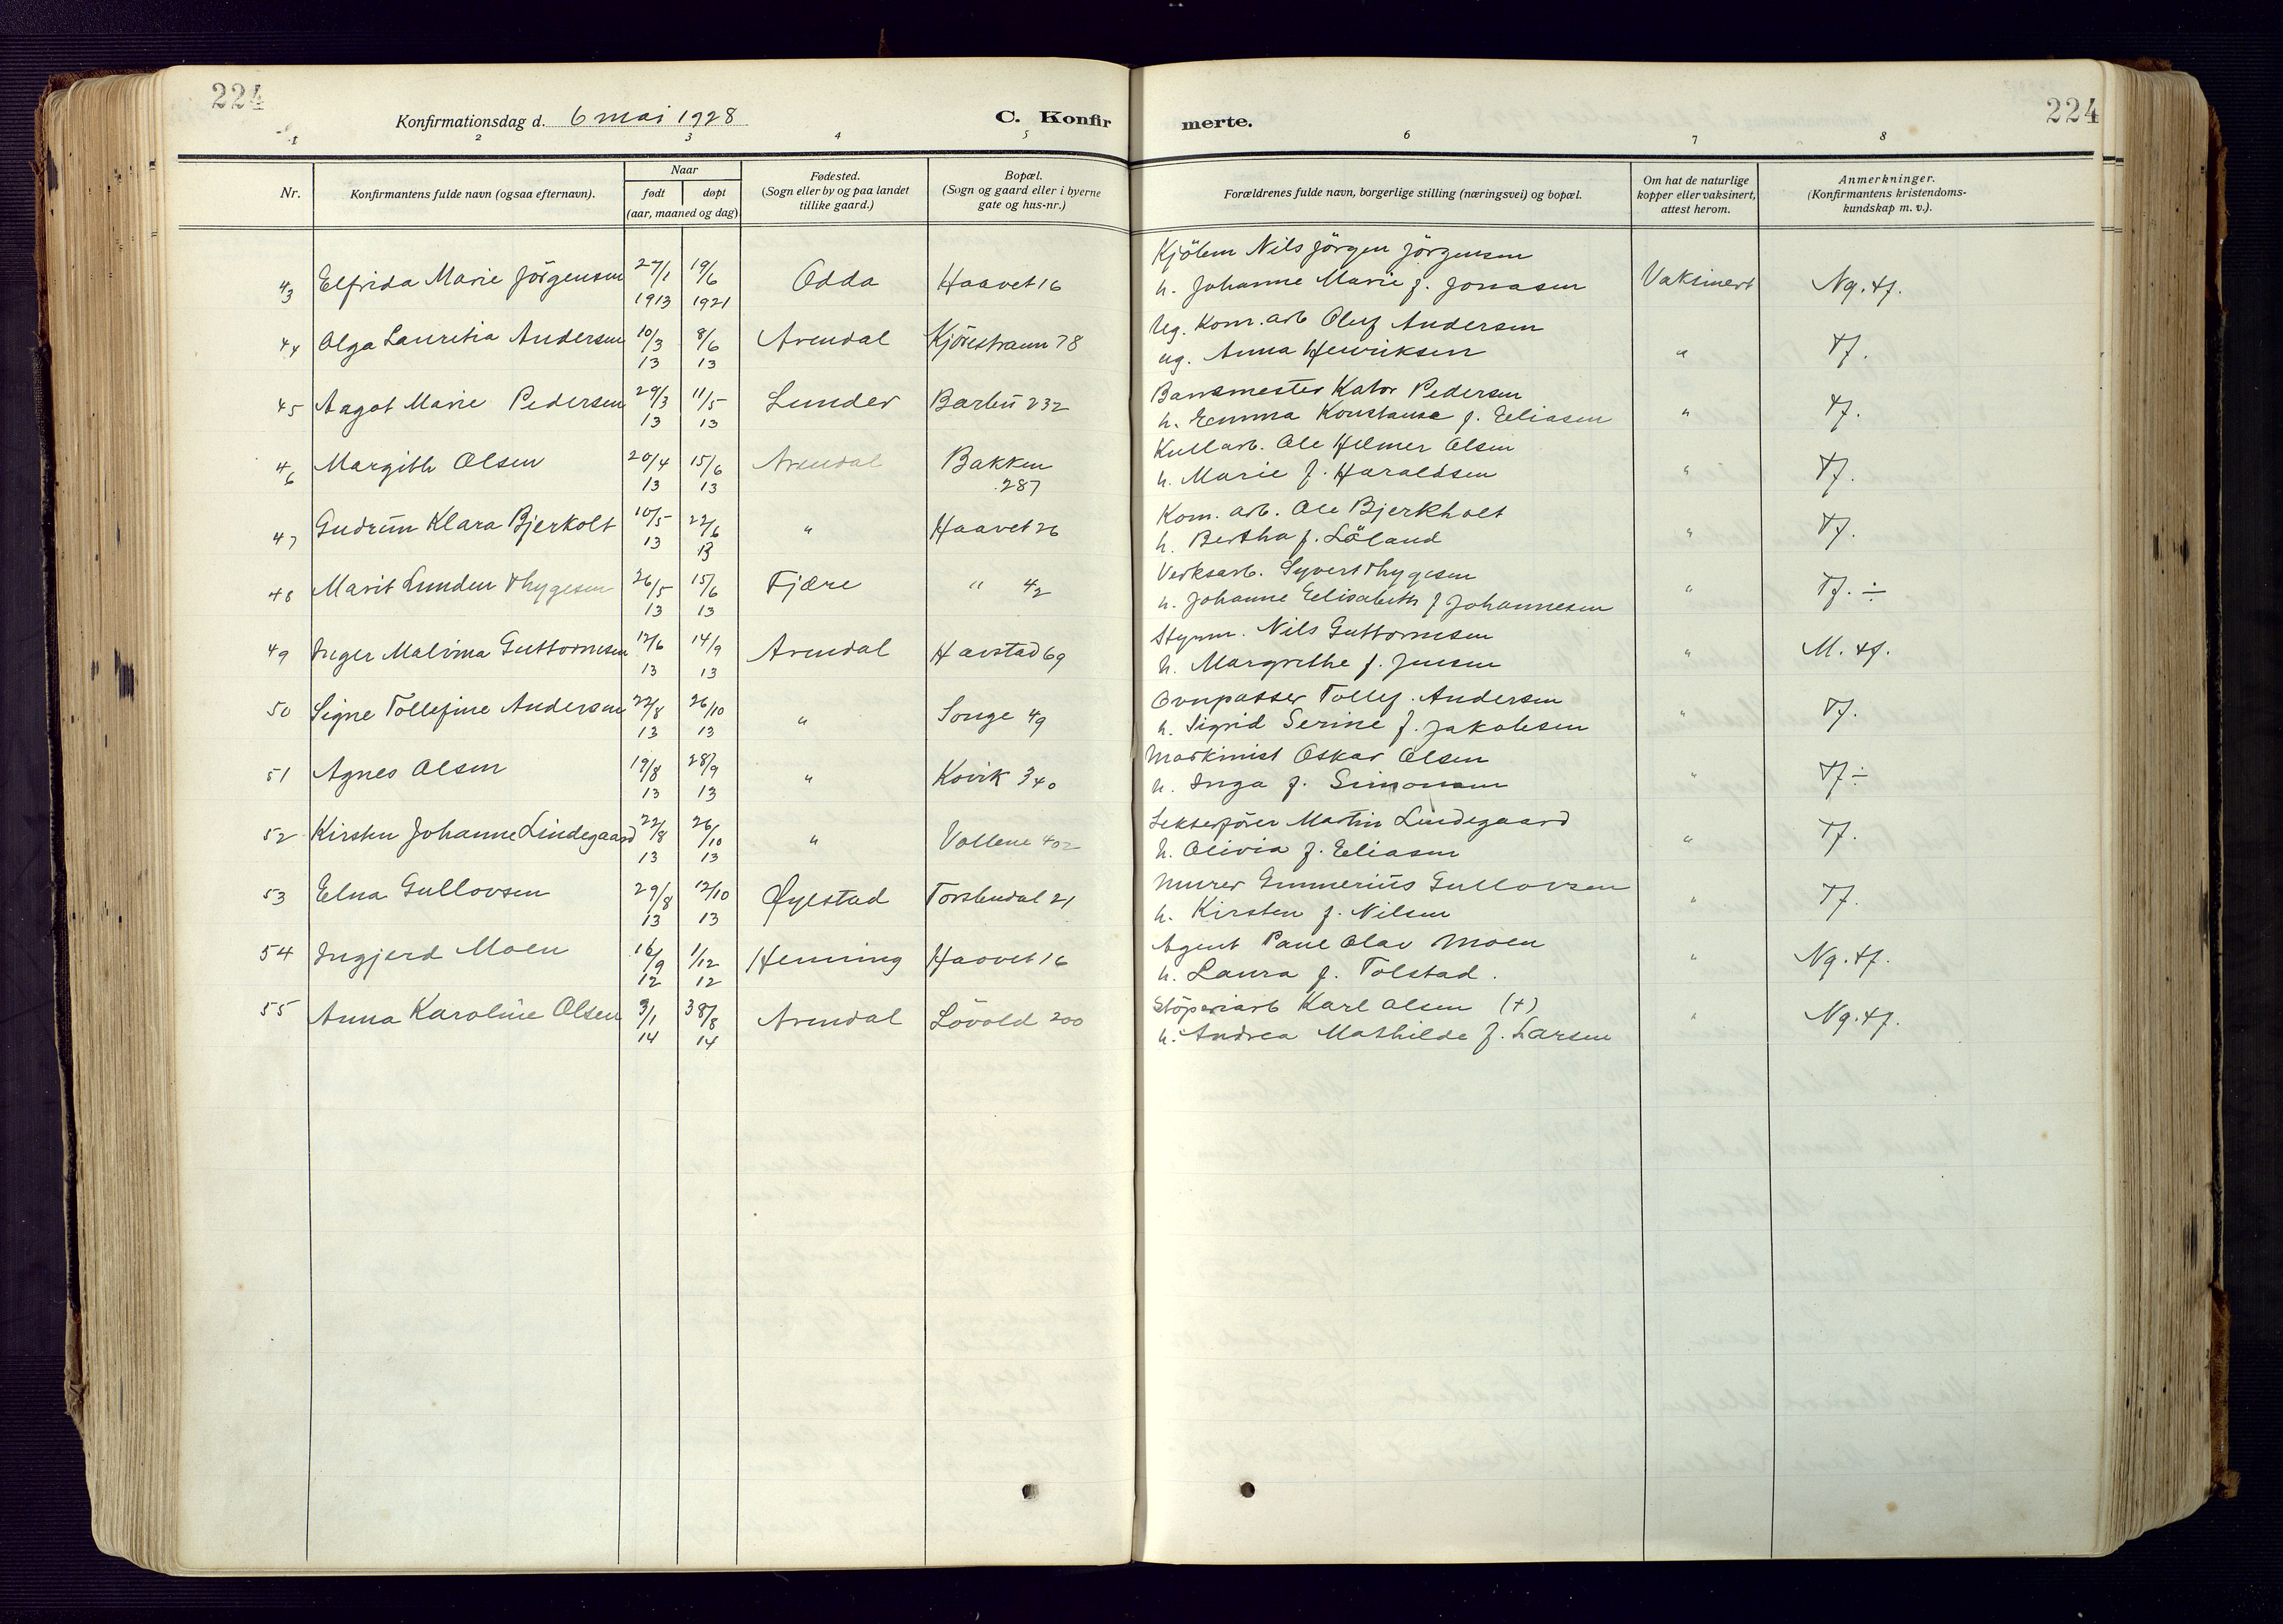 224
224
Konfirmationsdag d. 6 mai 1928
C. Konfir
merte.
1 2 3 4 5 6 7 8
Nr.
Konfirmantens fulde navn (ogsaa efternavn).
Naar
født døpt
(aar, maaned og dag)
Fødested.
(Sogn eller by og paa landet
tillike gaard.)
Bopæl.
(Sogn og gaard eller i byerne
gate og hus-nr.)
Forældrenes fulde navn, borgerlige stilling (næringsvei) og bopæl.
Om hat de naturlige
kopper eller vaksinert,
attest herom.
Anmerkninger.
(Konfirmantens kristendoms-
kundskap m. v.).
Nils Jörgen Jörgensen
43 Elfrida Marie Jörgensen 27/1 19/6 Odda Haavet 16 h. Johanne Marie f. Jonasen Vaksinert Ng. tf.
1913 1921
Ug. Kom. arb Oluf Andersen
44 Olga Lauritia Andersen 10/3 8/6 Arendal 78 ug. Anna Henriksen " Tf.
13 13
Banemester Kator Pedersen
45 Aagot Marie Pedersen 29/3 11/5 Lunder Barbu 232 h. Emma Konstanse f. Eliasen " Tf.
13 13
Kullarb. Ole Helmer Olsen
46 Margith Olsen 20/4 15/6 Arendal Bakken h. Marie f. Haraldsen " Tf.
13 13 287
Kom. arb. Ole Bjerkholt
47 Gudrun Klara Bjerkolt 10/5 22/6 " Haavet 26 h. Bertha f. Löland " Tf.
13 13
Verksarb. Syvert Thygesen
48 Marit Lunden Thygesen 26/5 15/6 Fjære " 42 h. Johanne Elisabeth f Johannesen " Tf. ÷
13 13
Styrm. Nils Guttormsen
49 Inger Malvina Guttormsen 12/6 14/9 Arendal Havstad 69 h. Margrethe f. Jensen " M. tf.
13 13
Ovnpasser Tollef Andersen
50 Signe Tollefine Andersen 22/8 26/10 " Songe 49 h. Sigrid Serine f. Jakobsen " Tf.
13 13
Maskinist Oskar Olsen
51 Agnes Olsen 19/8 28/9 " Kovik 340 h. Inga f. Simonsen " Tf ÷
13 13
Lekterfører Martin Lindegaard
52 Kirsten Johanne Lindegaard 22/8 26/10 " Vollene 402 h. Olivia f. Eliasen " Tf.
13 13
Murer Gunnerius Gullovsen
53 Elna Gullovsen 29/8 12/10 Øyestad Torsbudal 21 h. Kirsten f. Nilsen " Tf.
13 13
Agent Paul Olav Moen
54 Ingjerd Moen 16/9 1/12 Henning Haavet 16 h. Laura f. Tolstad. " Ng. tf.
12 12
Stöperiarb Karl Olsen (+)
55 Anna Karoline Olsen 3/1 Arendal Lövold 200 h. Andrea Mathilde f. Larsen " Ng. tf.
14 14